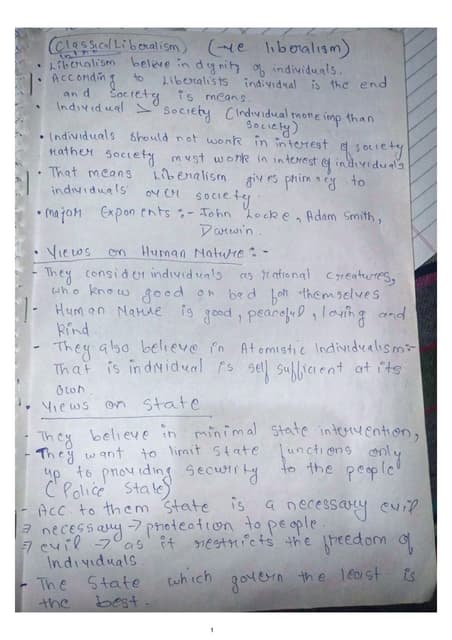 (Classical Liberalism) (-ve liberalism)
• Liberalism believe in dignity of individuals.
• According to Liberalists individual is the end
and Society is means.
• Individual > society (Individual more imp than
society)
• Individuals should not work in interest of society
rather society must work in interest of individuals
• That means Liberalism gives primacy to
individuals over society.
• Major Exponents :- John Locke, Adam Smith,
Darwin.
• Views on Human Nature :-
- They consider individuals as rational creatures,
who know good or bad for themselves
- Human Nature is good, peaceful, loving and
kind.
- They also believe in Atomistic Individualism:-
That is individual is self sufficient at its
own.
• Views on state
- They believe in minimal state intervention,
- They want to limit state functions only
up to providing security to the people
(Police State)
- Acc. to them State is a necessary evil
→ necessary → protection to people.
→ evil → as it restricts the freedom of
Individuals.
- The State which govern the least is
the best.
1